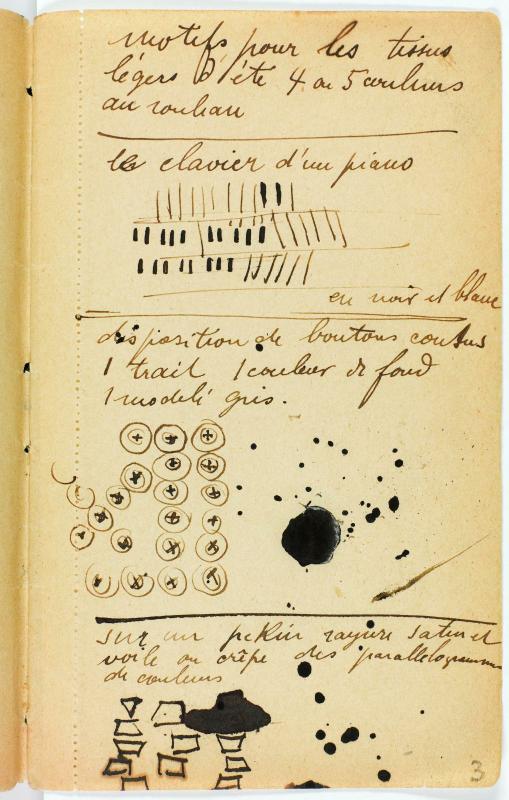 motifs pour les tissus
légers d'été 4 ou 5 couleurs
au rouleau
le clavier d'un piano
en noir et blanc
disposition de boutons cousus
1 trait 1 couleur de fond
1 modelé gris.
sur un pekin rayure satin et
voile ou crêpe des parallelogrammes
de couleurs
3